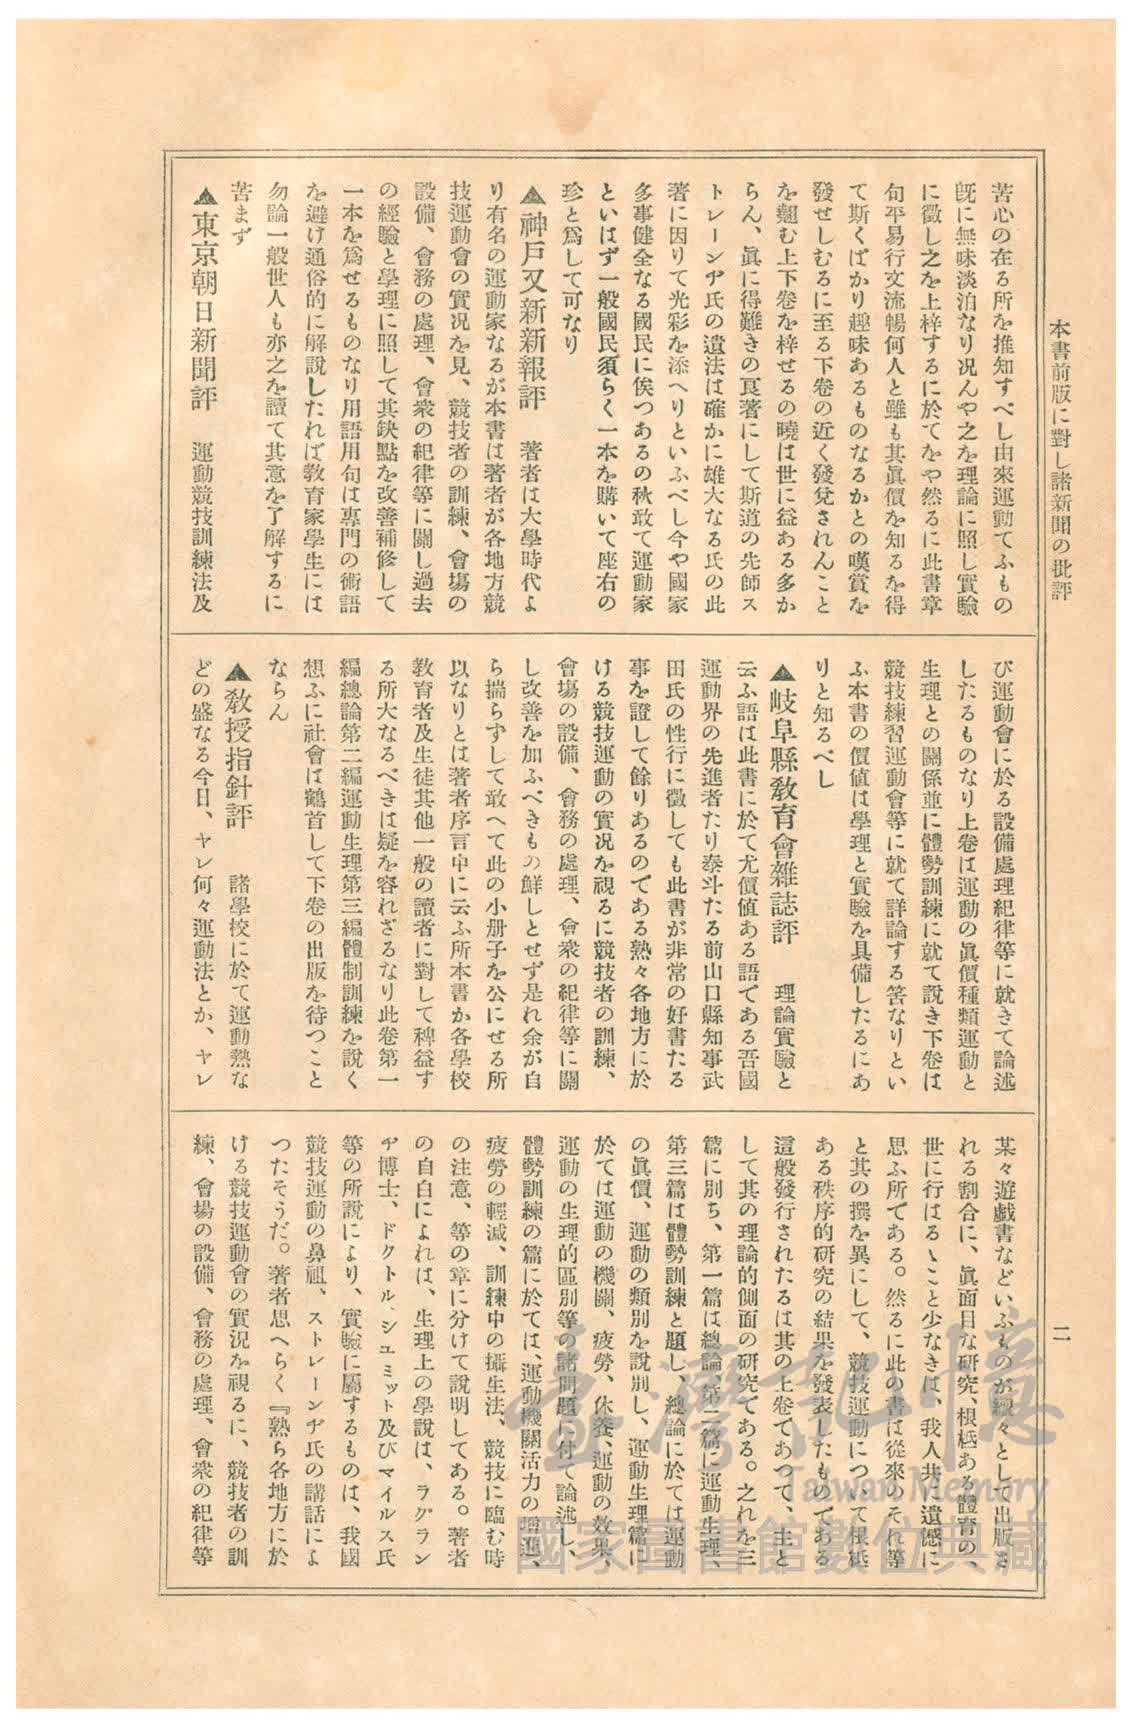 本書前版に對し諸新聞の批評
二
苦心の在る所を推知すべし由來運動てふもの
旣に無味淡泊なり况んや之を理論に照し實驗
に徵し之を上梓するに於てをや然るに此書章
句平易行文流暢何人と雖も其眞價を知るを得
て斯くばかり趣味あるものなるかとの嘆賞を
發せしむるに至る下卷の近く發兌されんこと
を翹む上下卷を梓せるの曉は世に益ある多か
らん、眞に得難きの良著にして斯道の先師ス
トレーンヂ氏の遺法は確かに雄大なる氏の此
著に因りて光彩を添へりといふべし今や國家
多事健全なる國民に俟つあるの秋敢て運動家
といはず一般國民須らく一本を購いて座右の
珍と爲して可なり
▲神戶又新新報評　著者は大學時代よ
り有名の運動家なるが本書は著者が各地方競
技運動會の實况を見、競技者の訓練、會塲の
設備、會務の處理、會衆の紀律等に關し過去
の經驗と學理に照して其缺點を改善補修して
一本を爲せるものなり用語用句は專門の術語
を避け通俗的に解說したれば敎育家學生には
勿論一般世人も亦之を讀て其意を了解するに
苦まず
▲東京朝日新聞評　運動競技訓練法及
び運動會に於る設備處理紀律等に就きて論述
したるものなり上卷は運動の眞價種類運動と
生理との關係並に體勢訓練に就て說き下卷は
競技練習運動會等に就て詳論する筈なりとい
ふ本書の價値は學理と實驗を具備したるにあ
りと知るべし
▲岐阜縣敎育會雜誌評　理論實驗と
云ふ語は此書に於て尤價値ある語である吾國
運動界の先進者たり泰斗たる前山口縣知事武
田氏の性行に徵しても此書が非常の好書たる
事を證して餘りあるのである熟々各地方に於
ける競技運動の實况を視るに競技者の訓練、
會塲の設備、會務の處理、會衆の紀律等に關
し改善を加ふべきもの鮮しとせず是れ余が自
ら揣らずして敢へて此の小册子を公にせる所
以なりとは著者序言中に云ふ所本書か各學校
敎育者及生徒其他一般の讀者に對して稗益す
る所大なるべきは疑を容れざるなり此卷第一
編總論第二編運動生理第三編體制訓練を說く
想ふに社會は鶴首して下卷の出版を待つこと
ならん
▲敎授指針評　諸學校に於て運動熱な
どの盛なる今日、ヤレ何々運動法とか、ヤレ
某々遊戯書などいふものが續々として出版さ
れる割合に、眞面目な研究、根柢ある體育の、
世に行はるゝこと少なきは、我人共に遺憾に
思ふ所である。然るに此の書は從來のそれ等
と其の撰を異にして、競技運動について根柢
ある秩序的硏究の結果を發表したものである
這般發行されたるは其の上卷であつて、主と
して其の理論的側面の硏究である。之れを三
篇に別ち、第一篇は總論、第二篇に運動生理、
第三篇は體勢訓練と題し、總論に於ては運動
の眞價、運動の類別を說別し、運動生理篇に
於ては運動の機關、疲勞、休養、運動の效果、
運動の生理的區別等の諸問題に付て論述し、
體勢訓練の篇に於ては、運動機關活力の增進、
疲勞の輕減、訓練中の攝生法、競技に臨む時
の注意、等の章に分けて說明してある。著者
の自白によれば、生理上の學說は、ラグラン
ヂ博士、ドクトル、シユミット及びマイルス氏
等の所說により、實驗に屬するものは、我國
競技運動の鼻祖、ストレーンヂ氏の講話によ
つたそうだ。著者思へらく『熟ら各地方に於
ける競技運動會の實況を視るに、競技者の訓
練、會場の設備、會務の處理、會衆の紀律等
臺灣記憶
Taiwan Memory
國家圖書館數位典藏